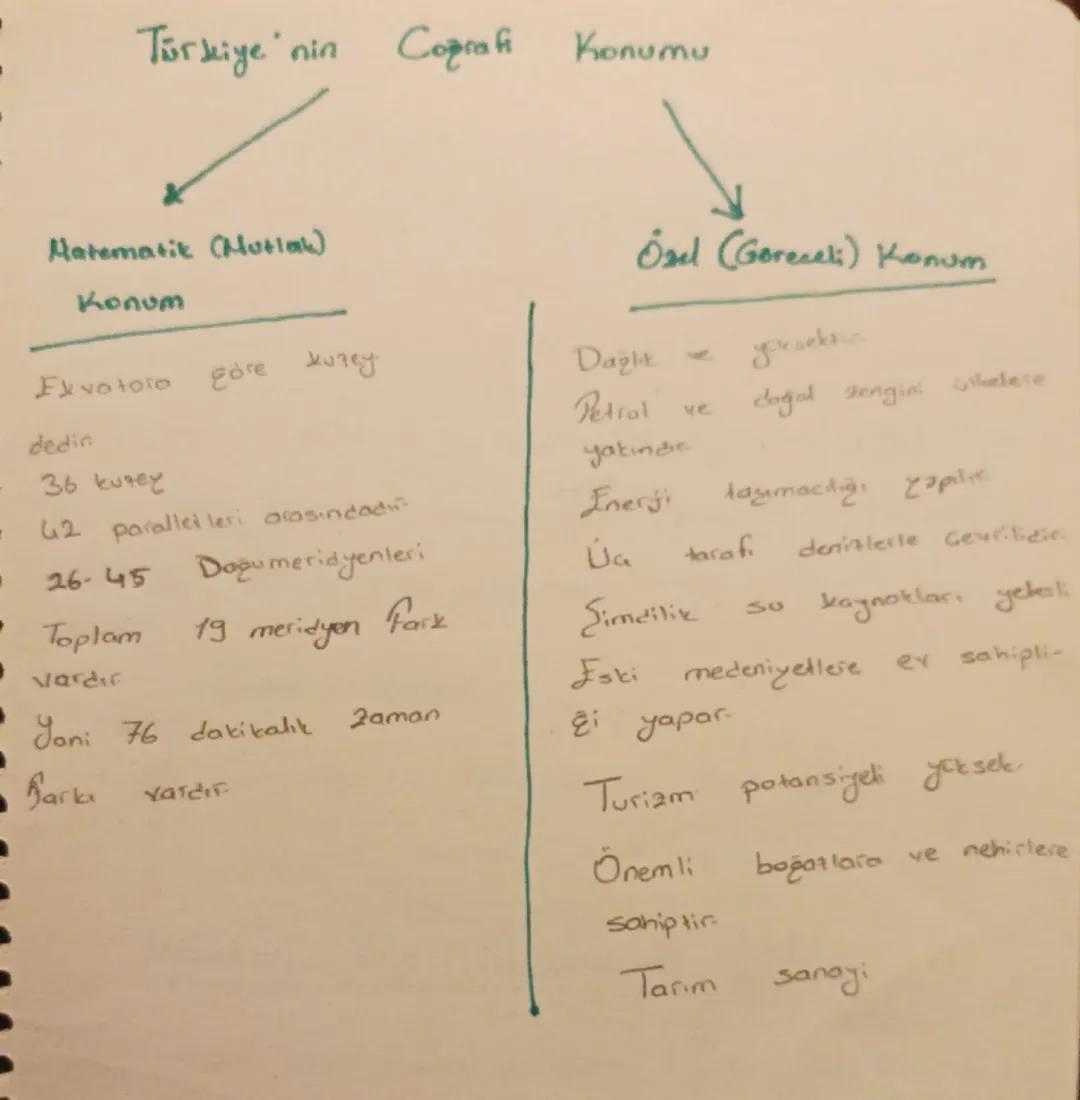 Türkiye'nin Coğrafi Konumu
Matematik (Mutlak)
Konum
Ekvatora göre kuzey
dedir.
36 kuzey
42 paralelleri arasındadır.
26-45 Doğu meridyenleri
Toplam 19 meridyen fark
vardır.
Yani 76 dakikalık zaman
farkı vardır.
Özel (Göreceli) Konum
Dağlık ve yüksektir.
Petrol ve doğal zengini ülkelere
yakındır.
Enerji taşımacılığı yapılır.
Üç tarafı denizlerle çevrilidir.
Şimdilik su kaynakları yeterli
Eski medeniyetlere ev sahipli-
ği yapar.
Turizm potansiyeli yüksek.
Önemli boğazlara ve nehirlere
sahiptir.
Tarım sanayi